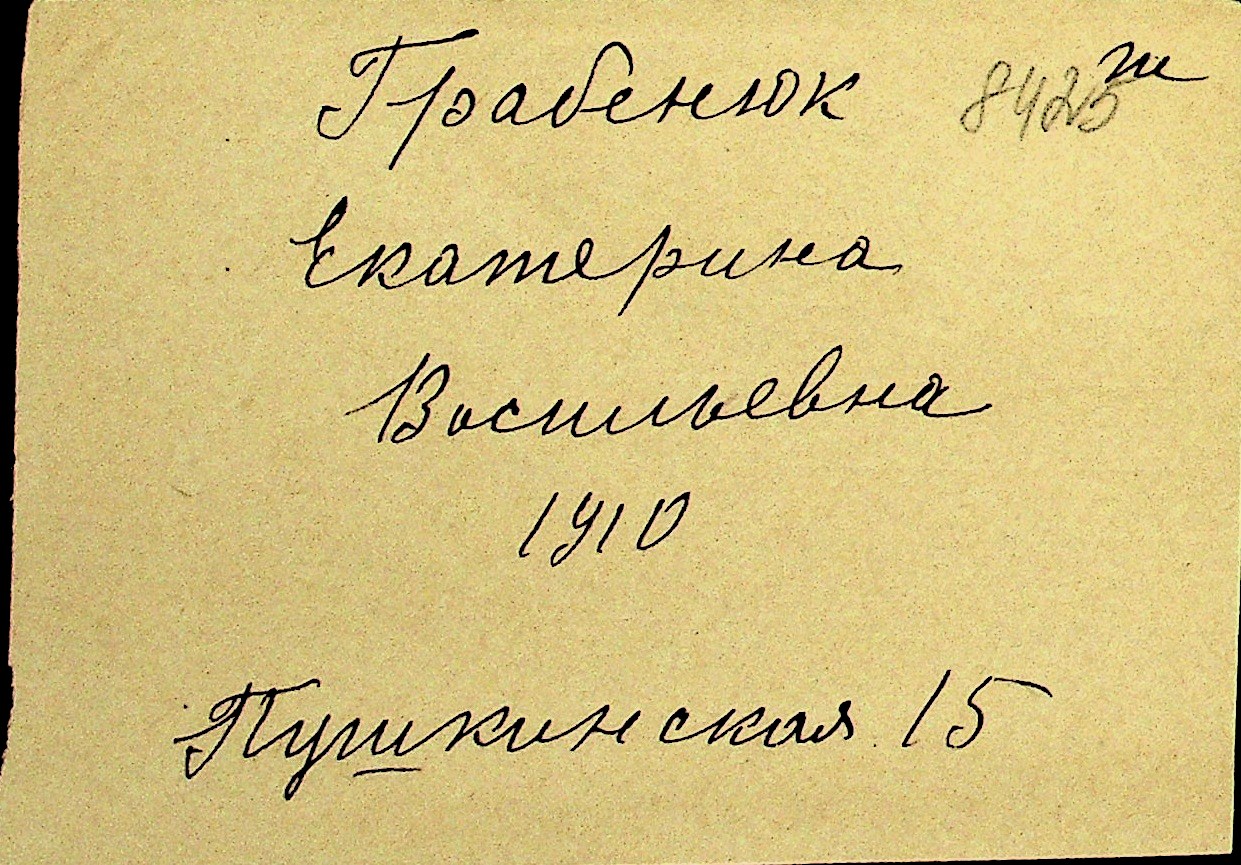 Грабенюк 8425 т
Екатерина
Васильевна
1910
Пушкинская 15